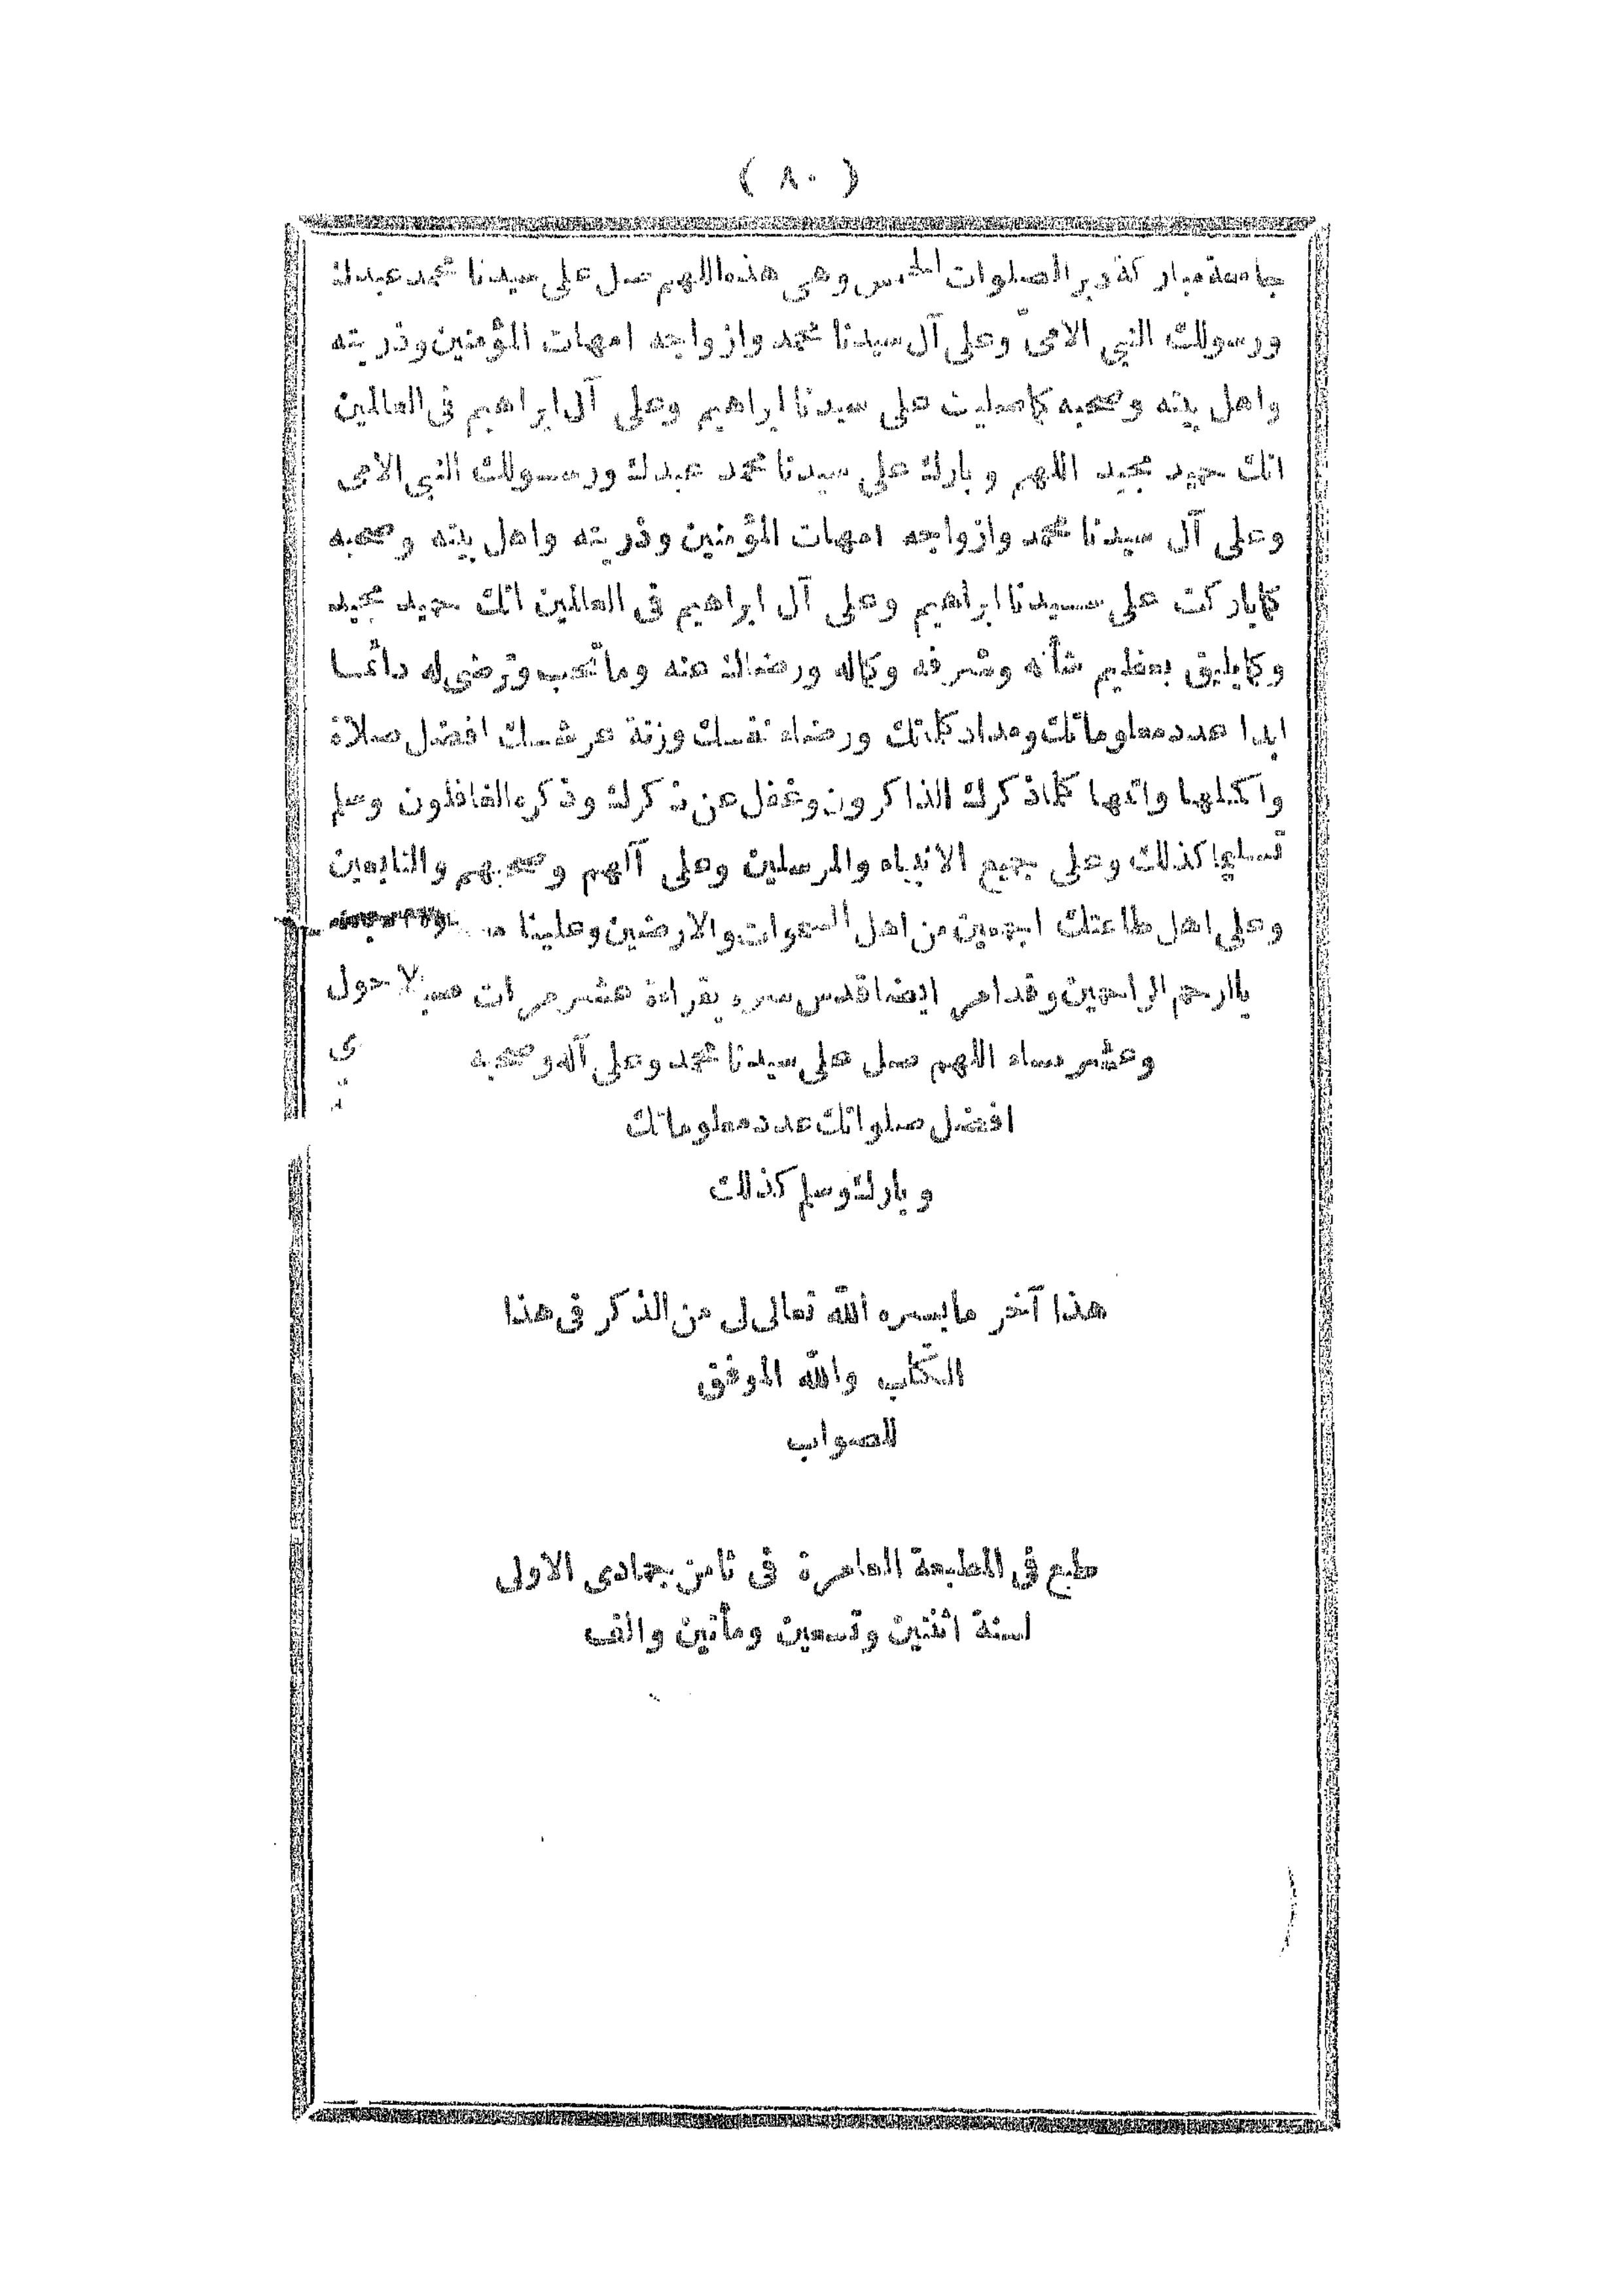 ( ٨٠ )
جامعة مباركة دبر الصلوات الخمس وهى هذه اللهم صل على سيدنا محمد عبدك
ورسولك النبي الامىّ وعلى آل سيدنا محمد وازواجه امهات المؤمنين وذريته
واهل بيته وصحبه كما صليت على سيدنا ابراهيم وعلى آل ابراهيم فى العالمين
انك حميد مجيد اللهم وبارك على سيدنا محمد عبدك ورسولك النبي الامى
وعلى آل سيدنا محمد وازواجه امهات المؤمنين وذريته واهل بيته وصحبه
كما باركت على سيدنا ابراهيم وعلى آل ابراهيم فى العالمين انك حميد مجيد
وكما يليق بعظيم شأنه وشرفه وكماله ورضاك عنه وما تحب وترضى له دائما
ابدا عدد معلوماتك ومداد كلماتك ورضاء نفسك وزنة عرشك افضل صلاة
واكملها واتمها كلما ذكرك الذاكرون وغفل عن ذكرك وذكره الغافلون وسلم
تسليما كذلك وعلى جميع الانبياء والمرسلين وعلى آلهم وصحبهم والتابعين
وعلى اهل طاعتك اجمعين من اهل السموات والارضين وعلينا
ياارحم الراحمين وقد امر ايضا قدس سره بقراءة عشر مرات صباحا حول
وعشر مساء اللهم صل على سيدنا محمد وعلى آله وصحبه
افضل صلواتك عدد معلوماتك
وبارك وسلم كذلك
هذا آخر ما يسره الله تعالى لى من الذكر فى هذا
الكتاب والله الموفق
للصواب
طبع فى المطبعة العامرة فى ثامن جمادى الاولى
لسنة اثنتين وتسعين ومأتين والف